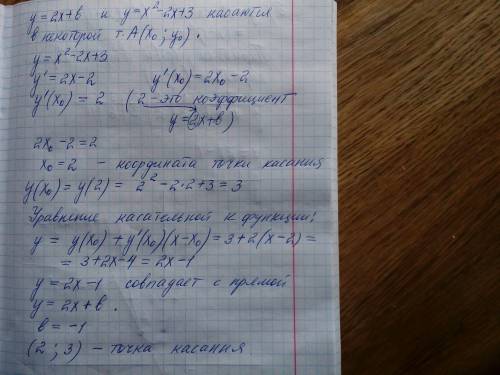 y=2x+b и y=x²-2x+3 касаются
в некоторой т. A(x₀; y₀).
y=x²-2x+3
y'=2x-2 y'(x₀)=2x₀-2
y'(x₀)=2 (2-это коэффициент
y=2x+b)
2x₀-2=2
x₀=2 - координата точки касания
y(x₀)=y(2)=2²-2·2+3=3
Уравнение касательной к функции:
y=y(x₀)+y'(x₀)(x-x₀)=3+2(x-2)=
=3+2x-4=2x-1
y=2x-1 совпадает с прямой
y=2x+b.
b=-1
(2; 3) - точка касания